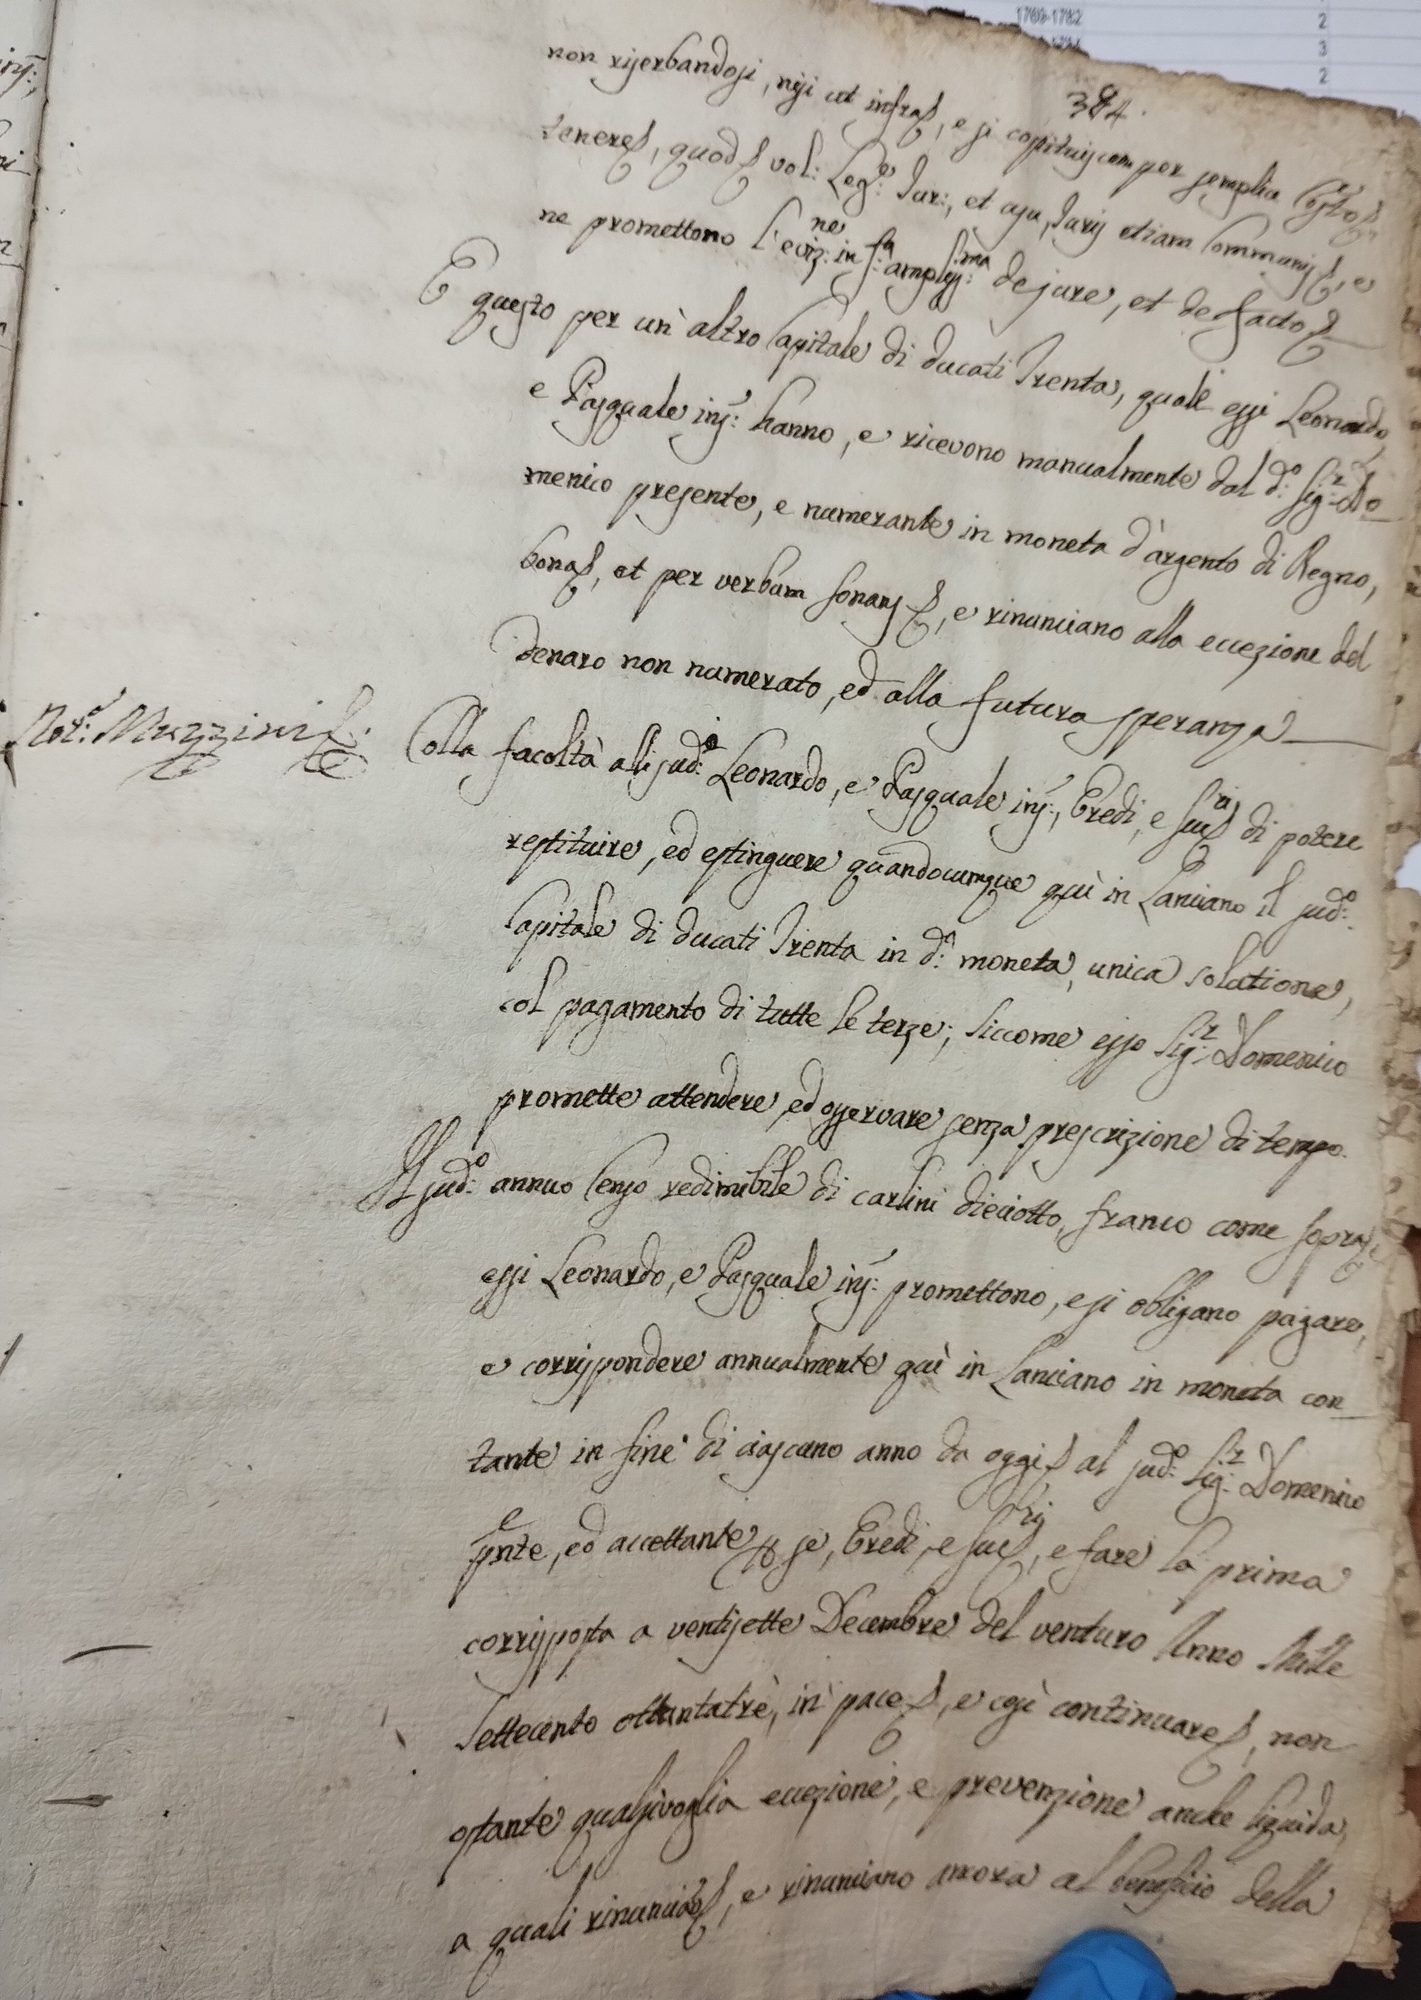 1769-1782 2
3
2
384.
non riserbandosi, nisi ut infra, e si costituiscono per semplice
tenere, quod vol: Leg:e Jur:, et aju, Juris etiam Communis, e
ne promettono l'eviz:ne in f:a ampliss:ma de jure, et de facto
E questo per un'altro Capitale di ducati Trenta, quali essi Leonardo,
e Pasquale ins: hanno, e ricevono manualmente dal d:o Sig:r Do
menico presente, e numerante in moneta d'argento di Regno,
bona, et per verbum sonans, e rinunciano alla eccezione del
denaro non numerato, ed alla futura speranza
Not:o Muzzini
Colla facoltà alli sud:i Leonardo, e Pasquale ins:, Eredi, e Succ:ri di potere
restituire, ed estinguere quandocumque quì in Lanciano il sud:o
Capitale di ducati Trenta in d:a moneta, unica solutione,
col pagamento di tutte le terze; siccome esso Sig:r Domenico
promette attendere, ed osservare senza prescrizione di tempo.
Il sud:o annuo Censo redimibile di carlini dieciotto, franco come sopra
essi Leonardo, e Pasquale ins: promettono, e si obligano pagare,
e corrispondere annualmente quì in Lanciano in moneta con
tante in fine di ciascuno anno da oggi al sud:o Sig:r Domenico
pnte, ed accettante p se, Eredi, e Succ:ri, e fare la prima
corrisposta a ventisette Decembre del venturo Anno Mille
Settecento ottantatrè, in pace, e così continuare, non
ostante qualsivoglia eccezione, e prevenzione anche liquida,
a quali rinunciano, e rinunciano ancora al beneficio della